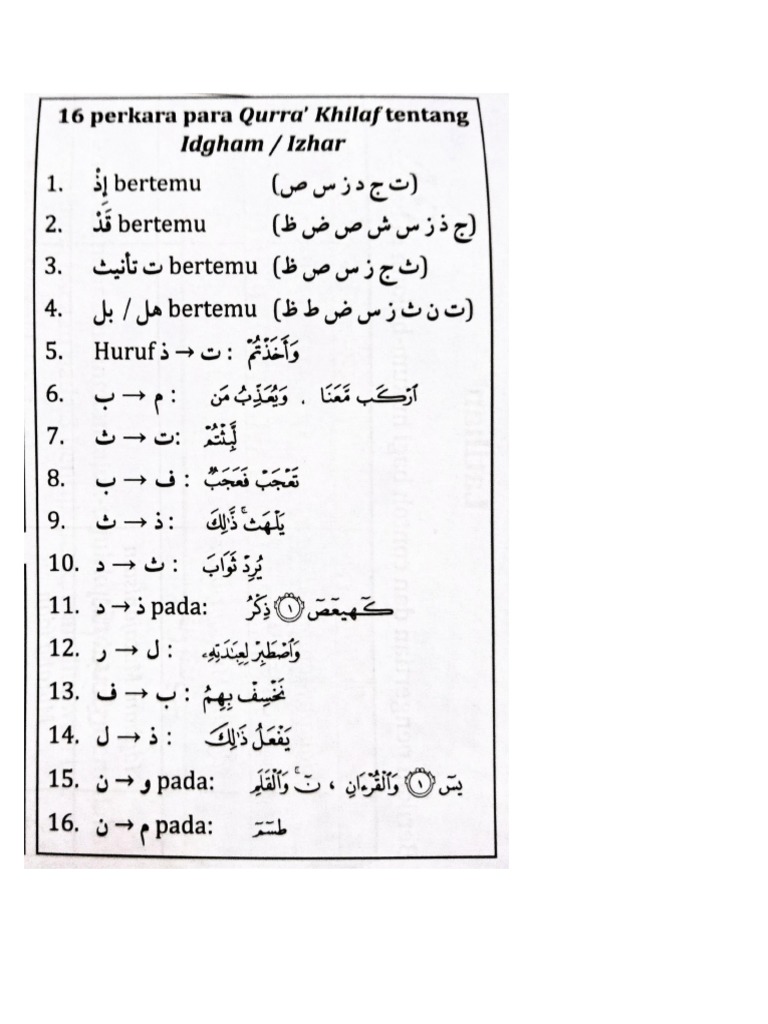 16 perkara para Qurra' Khilaf tentang
Idgham / Izhar
1. إِذْ bertemu (ت ج د ز س ص)
2. قَدْ bertemu (ج ذ ز س ش ص ض ظ)
3. ت تأنيث bertemu (ث ج ز س ص ظ)
4. هل / بل bertemu (ت ن ث ز س ض ط ظ)
5. Huruf ذ → ت : وَأَخَذۡتُمۡ
6. ب → م : ٱرۡكَب مَّعَنَا ، وَيُعَذِّبُ مَن
7. ث → ت: لَّبِثۡتُمۡ
8. ب → ف : تَعۡجَبۡ فَعَجَبٌ
9. ث → ذ : يَلۡهَثۚ ذَّٰلِكَ
10. د → ث : يُرِدۡ ثَوَابَ
11. د → ذ pada: كٓهيعٓصٓ ١ ذِكۡرُ
12. ر → ل : وَٱصۡطَبِرۡ لِعِبَٰدَتِهِۦ
13. ف → ب : نَخۡسِفۡ بِهِمُ
14. ل → ذ : يَفۡعَلۡ ذَٰلِكَ
15. ن → و pada: يسٓ ١ وَٱلۡقُرۡءَانِ ، نٓۚ وَٱلۡقَلَمِ
16. ن → م pada: طسٓمٓ